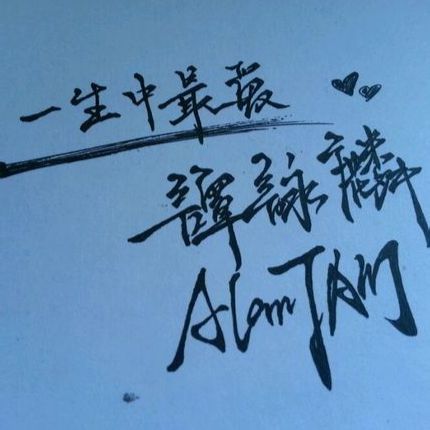 一生中最愛
譚詠麟
Alan TAM